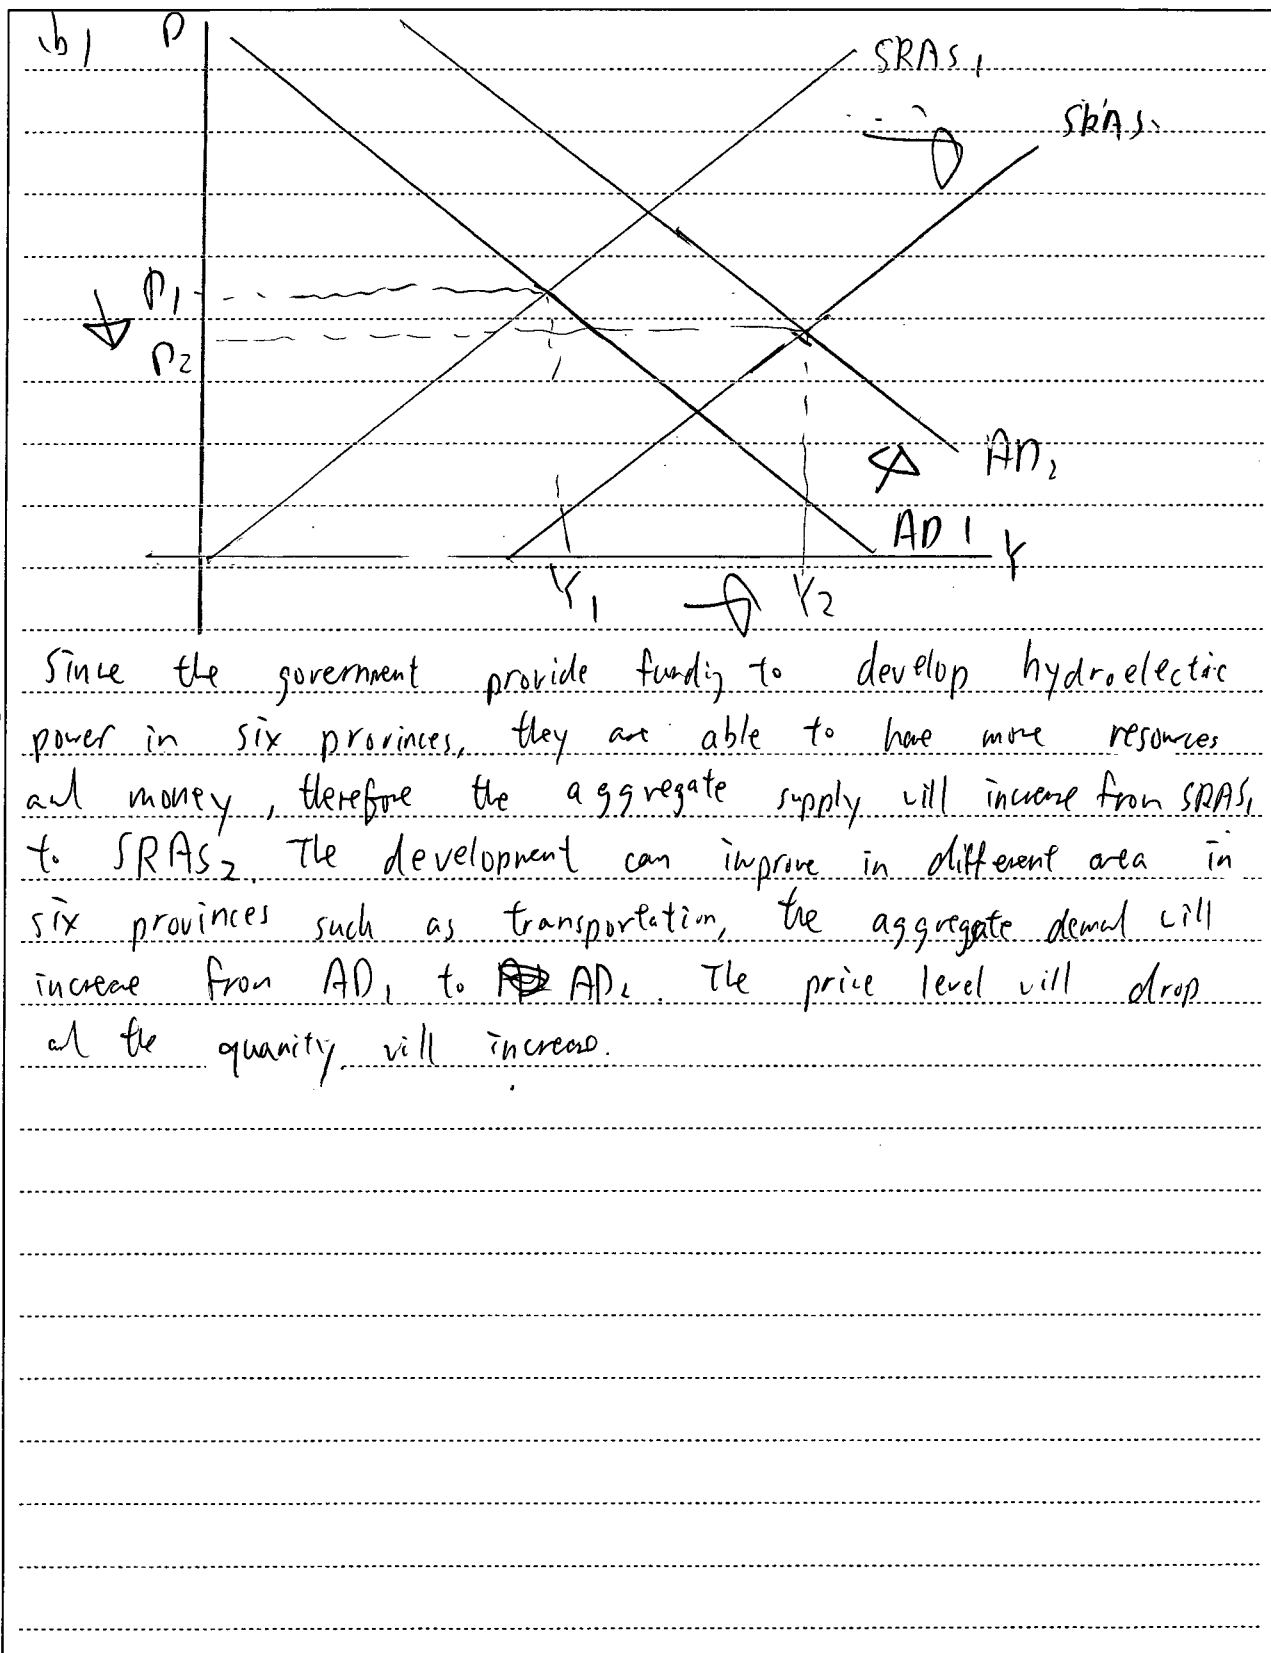 (b) P
SRAS1
SRAS
P1
P2
AD2
AD1 Y
Y1 Y2
Since the government provide funding to develop hydroelectric
power in six provinces, they are able to have more resources
and money, therefore the aggregate supply will increase from SRAS1
to SRAS2. The development can improve in different area in
six provinces such as transportation, the aggregate demand will
increase from AD1 to AD2. The price level will drop
and the quanity will increase.